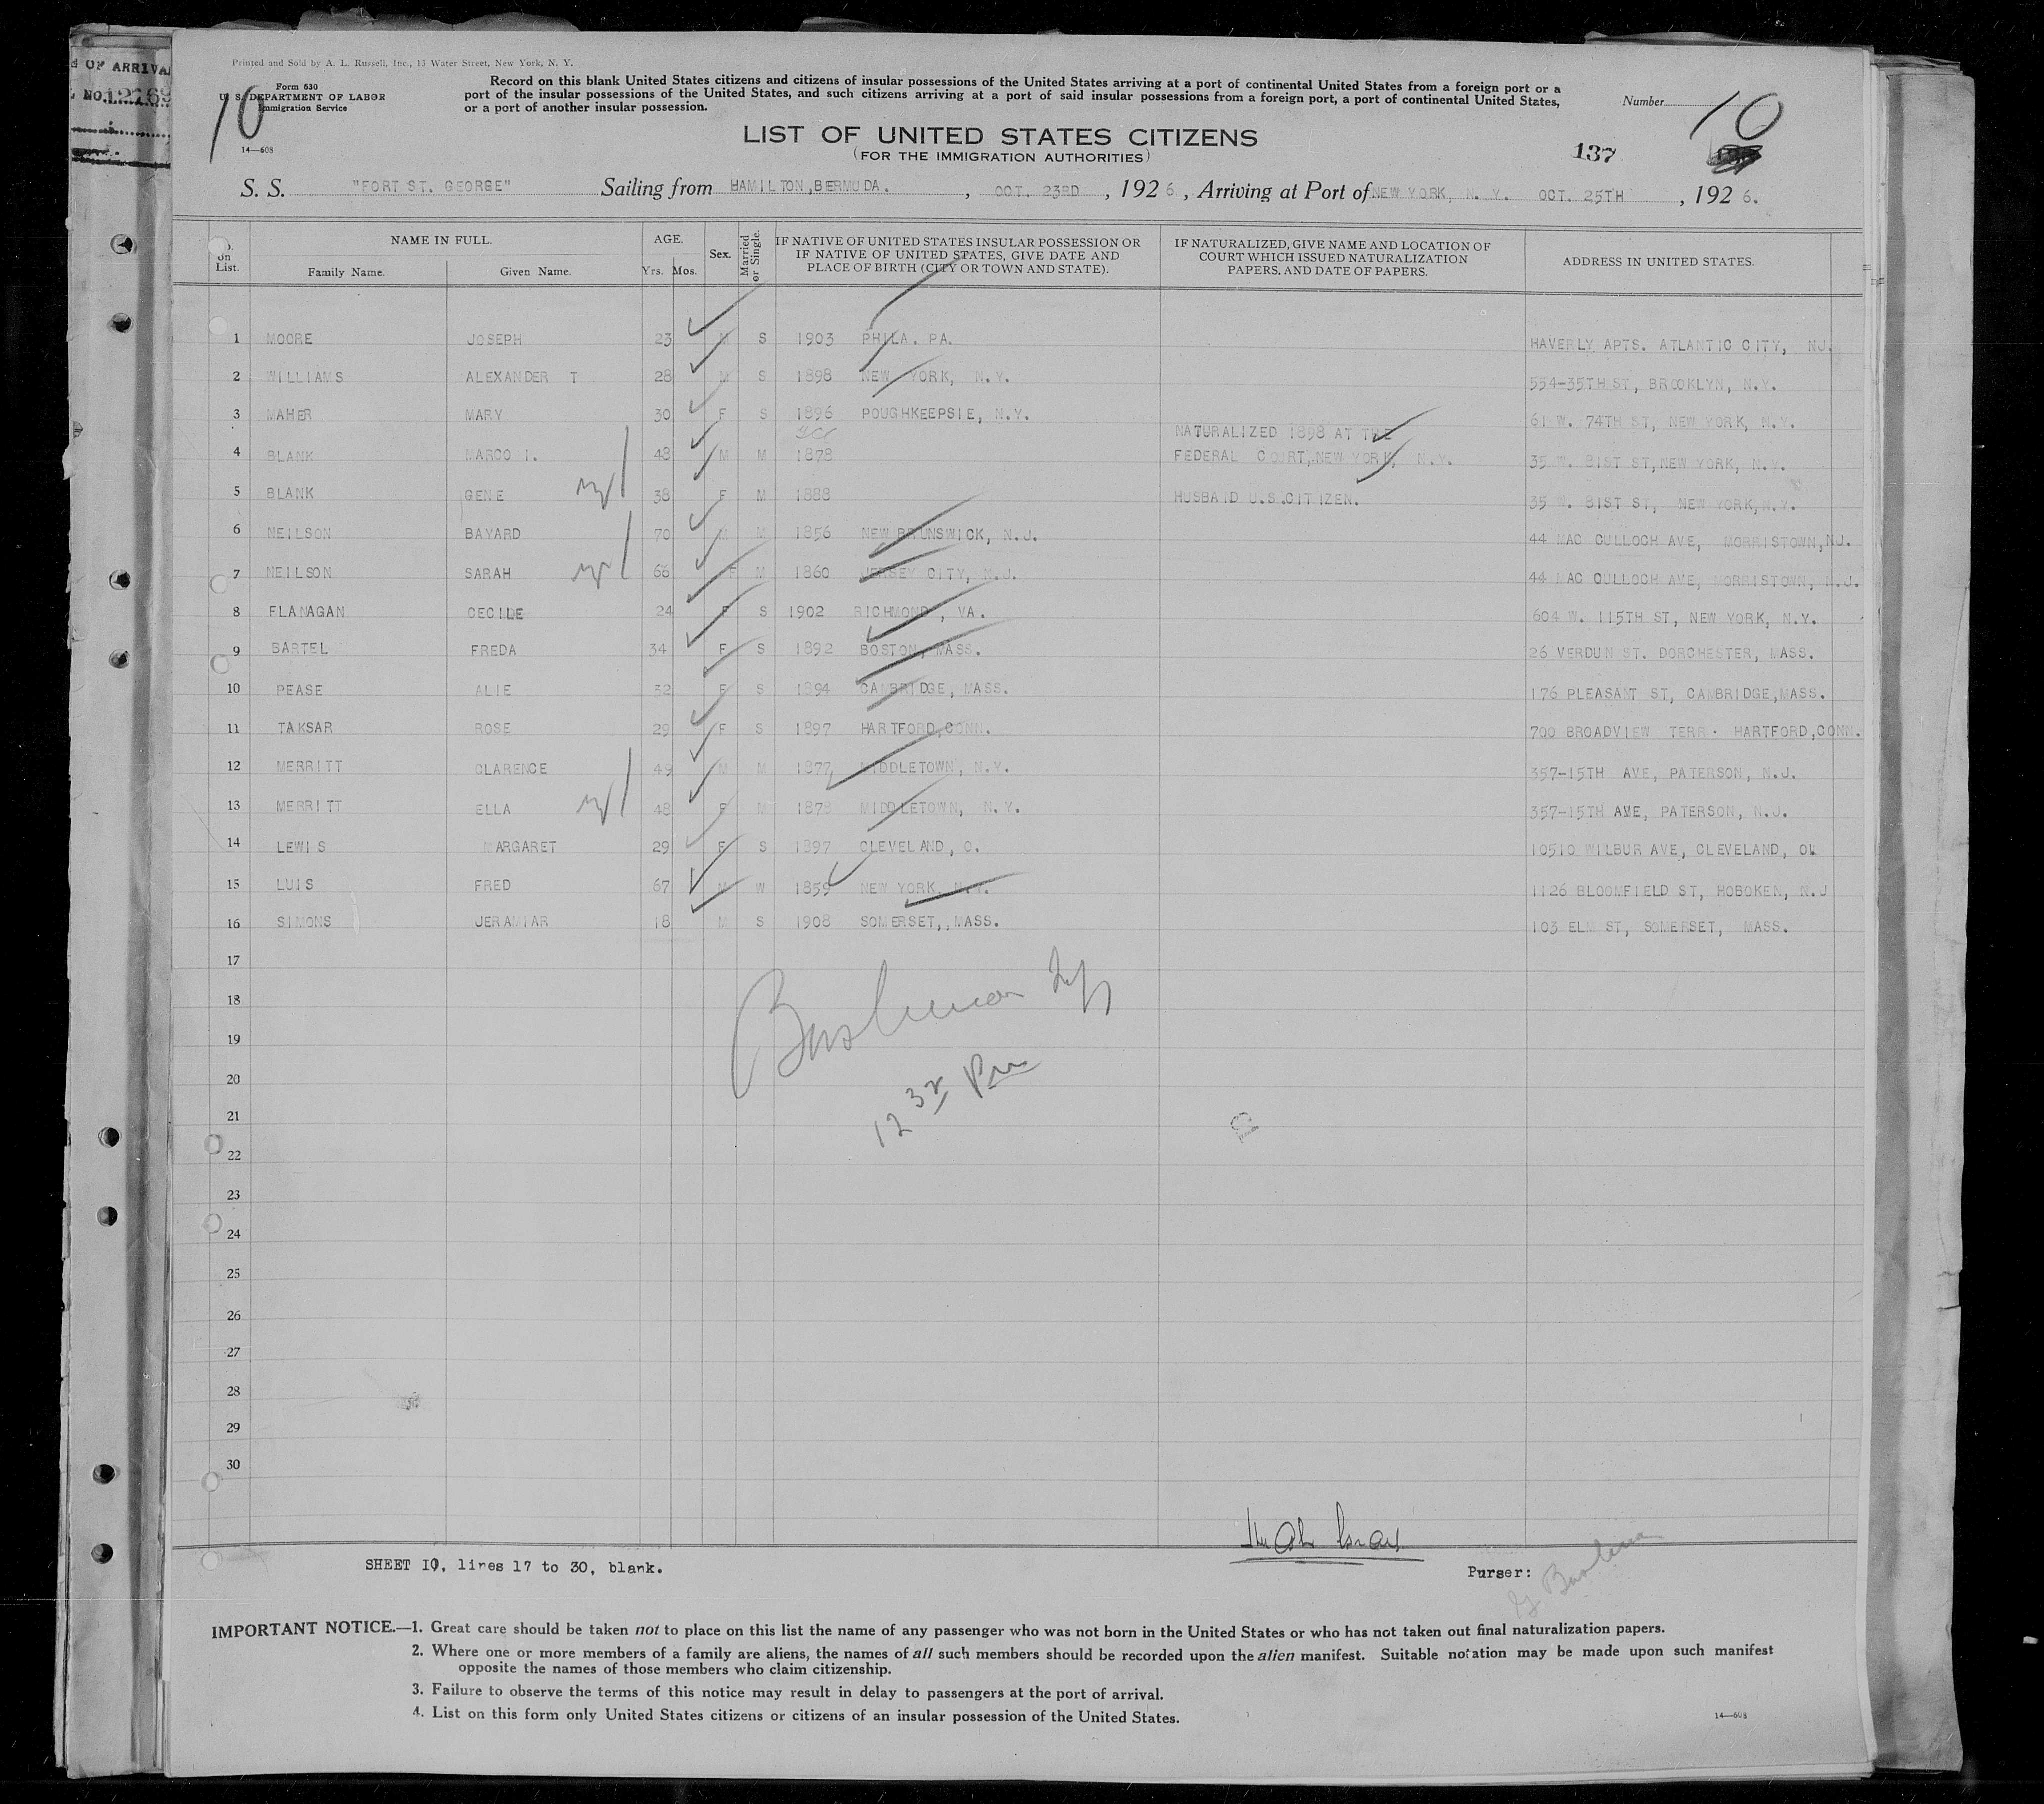 OF ARRIVA
NO. 12169
Printed and Sold by A. L. Russell, Inc., 13 Water Street, New York, N. Y.
Form 630
U. S. DEPARTMENT OF LABOR
Immigration Service
10
14—608
Record on this blank United States citizens and citizens of insular possessions of the United States arriving at a port of continental United States from a foreign port or a
port of the insular possessions of the United States, and such citizens arriving at a port of said insular possessions from a foreign port, a port of continental United States,
or a port of another insular possession.
Number 10
LIST OF UNITED STATES CITIZENS
(FOR THE IMMIGRATION AUTHORITIES)
137
S. S. "FORT ST. GEORGE" Sailing from HAMILTON,BERMUDA. , OCT. 23RD , 1926 , Arriving at Port of NEW YORK, N. Y. OCT. 25TH , 1926.
No. on List. NAME IN FULL. Family Name. Given Name. AGE. Yrs. Mos. Sex. Married or Single. IF NATIVE OF UNITED STATES INSULAR POSSESSION OR IF NATIVE OF UNITED STATES, GIVE DATE AND PLACE OF BIRTH (CITY OR TOWN AND STATE). IF NATURALIZED, GIVE NAME AND LOCATION OF COURT WHICH ISSUED NATURALIZATION PAPERS, AND DATE OF PAPERS. ADDRESS IN UNITED STATES.
1 MOORE JOSEPH 23 M S 1903 PHILA. PA. HAVERLY APTS. ATLANTIC CITY, NJ.
2 WILLIAMS ALEXANDER T 28 M S 1898 NEW YORK, N.Y. 554-35TH ST, BROOKLYN, N.Y.
3 MAHER MARY 30 F S 1896 POUGHKEEPSIE, N.Y. 61 W. 74TH ST, NEW YORK, N.Y.
NATURALIZED 1898 AT THE
4 BLANK MARCO I. 48 M M 1878 FEDERAL COURT,NEW YORK, N.Y. 35 W. 81ST ST,NEW YORK, N.Y.
5 BLANK GENE 38 F M 1888 HUSBAID U.S.CITIZEN. 35 W. 81ST ST, NEW YORK,N.Y.
6 NEILSON BAYARD 70 M M 1856 NEW BRUNSWICK, N.J. 44 MAC CULLOCH AVE, MORRISTOWN,NJ.
7 NEILSON SARAH 66 F M 1860 JERSEY CITY, N.J. 44 MAC CULLOCH AVE, MORRISTOWN, N.J.
8 FLANAGAN CECILE 24 F S 1902 RICHMOND, VA. 604 W. 115TH ST, NEW YORK, N.Y.
9 BARTEL FREDA 34 F S 1892 BOSTON, MASS. 26 VERDUN ST. DORCHESTER, MASS.
10 PEASE ALIE 32 F S 1894 CAMBRIDGE, MASS. 176 PLEASANT ST, CAMBRIDGE,MASS.
11 TAKSAR ROSE 29 F S 1897 HARTFORD,CONN. 700 BROADVIEW TERR. HARTFORD,CONN.
12 MERRITT CLARENCE 49 M M 1877 MIDDLETOWN, N.Y. 357-15TH AVE, PATERSON, N.J.
13 MERRITT ELLA 48 F M 1878 MIDDLETOWN, N.Y. 357-15TH AVE, PATERSON, N.J.
14 LEWIS MARGARET 29 F S 1897 CLEVELAND, O. 10510 WILBUR AVE, CLEVELAND, O.
15 LUIS FRED 67 M W 1859 NEW YORK, N.Y. 1126 BLOOMFIELD ST, HOBOKEN, N.J
16 SIMONS JERAMIAR 18 M S 1908 SOMERSET,,MASS. 103 ELM ST, SOMERSET, MASS.
17
18
19
20
21
22
23
24
25
26
27
28
29
30
SHEET 10, lines 17 to 30, blank.
Purser:
IMPORTANT NOTICE.—1. Great care should be taken not to place on this list the name of any passenger who was not born in the United States or who has not taken out final naturalization papers.
2. Where one or more members of a family are aliens, the names of all such members should be recorded upon the alien manifest. Suitable notation may be made upon such manifest
opposite the names of those members who claim citizenship.
3. Failure to observe the terms of this notice may result in delay to passengers at the port of arrival.
4. List on this form only United States citizens or citizens of an insular possession of the United States.
14—608